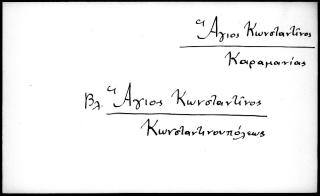 Ἅγιος Κωνσταντῖνος
Καραμανίας
Βλ. Ἅγιος Κωνσταντῖνος
Κωνσταντινουπόλεως